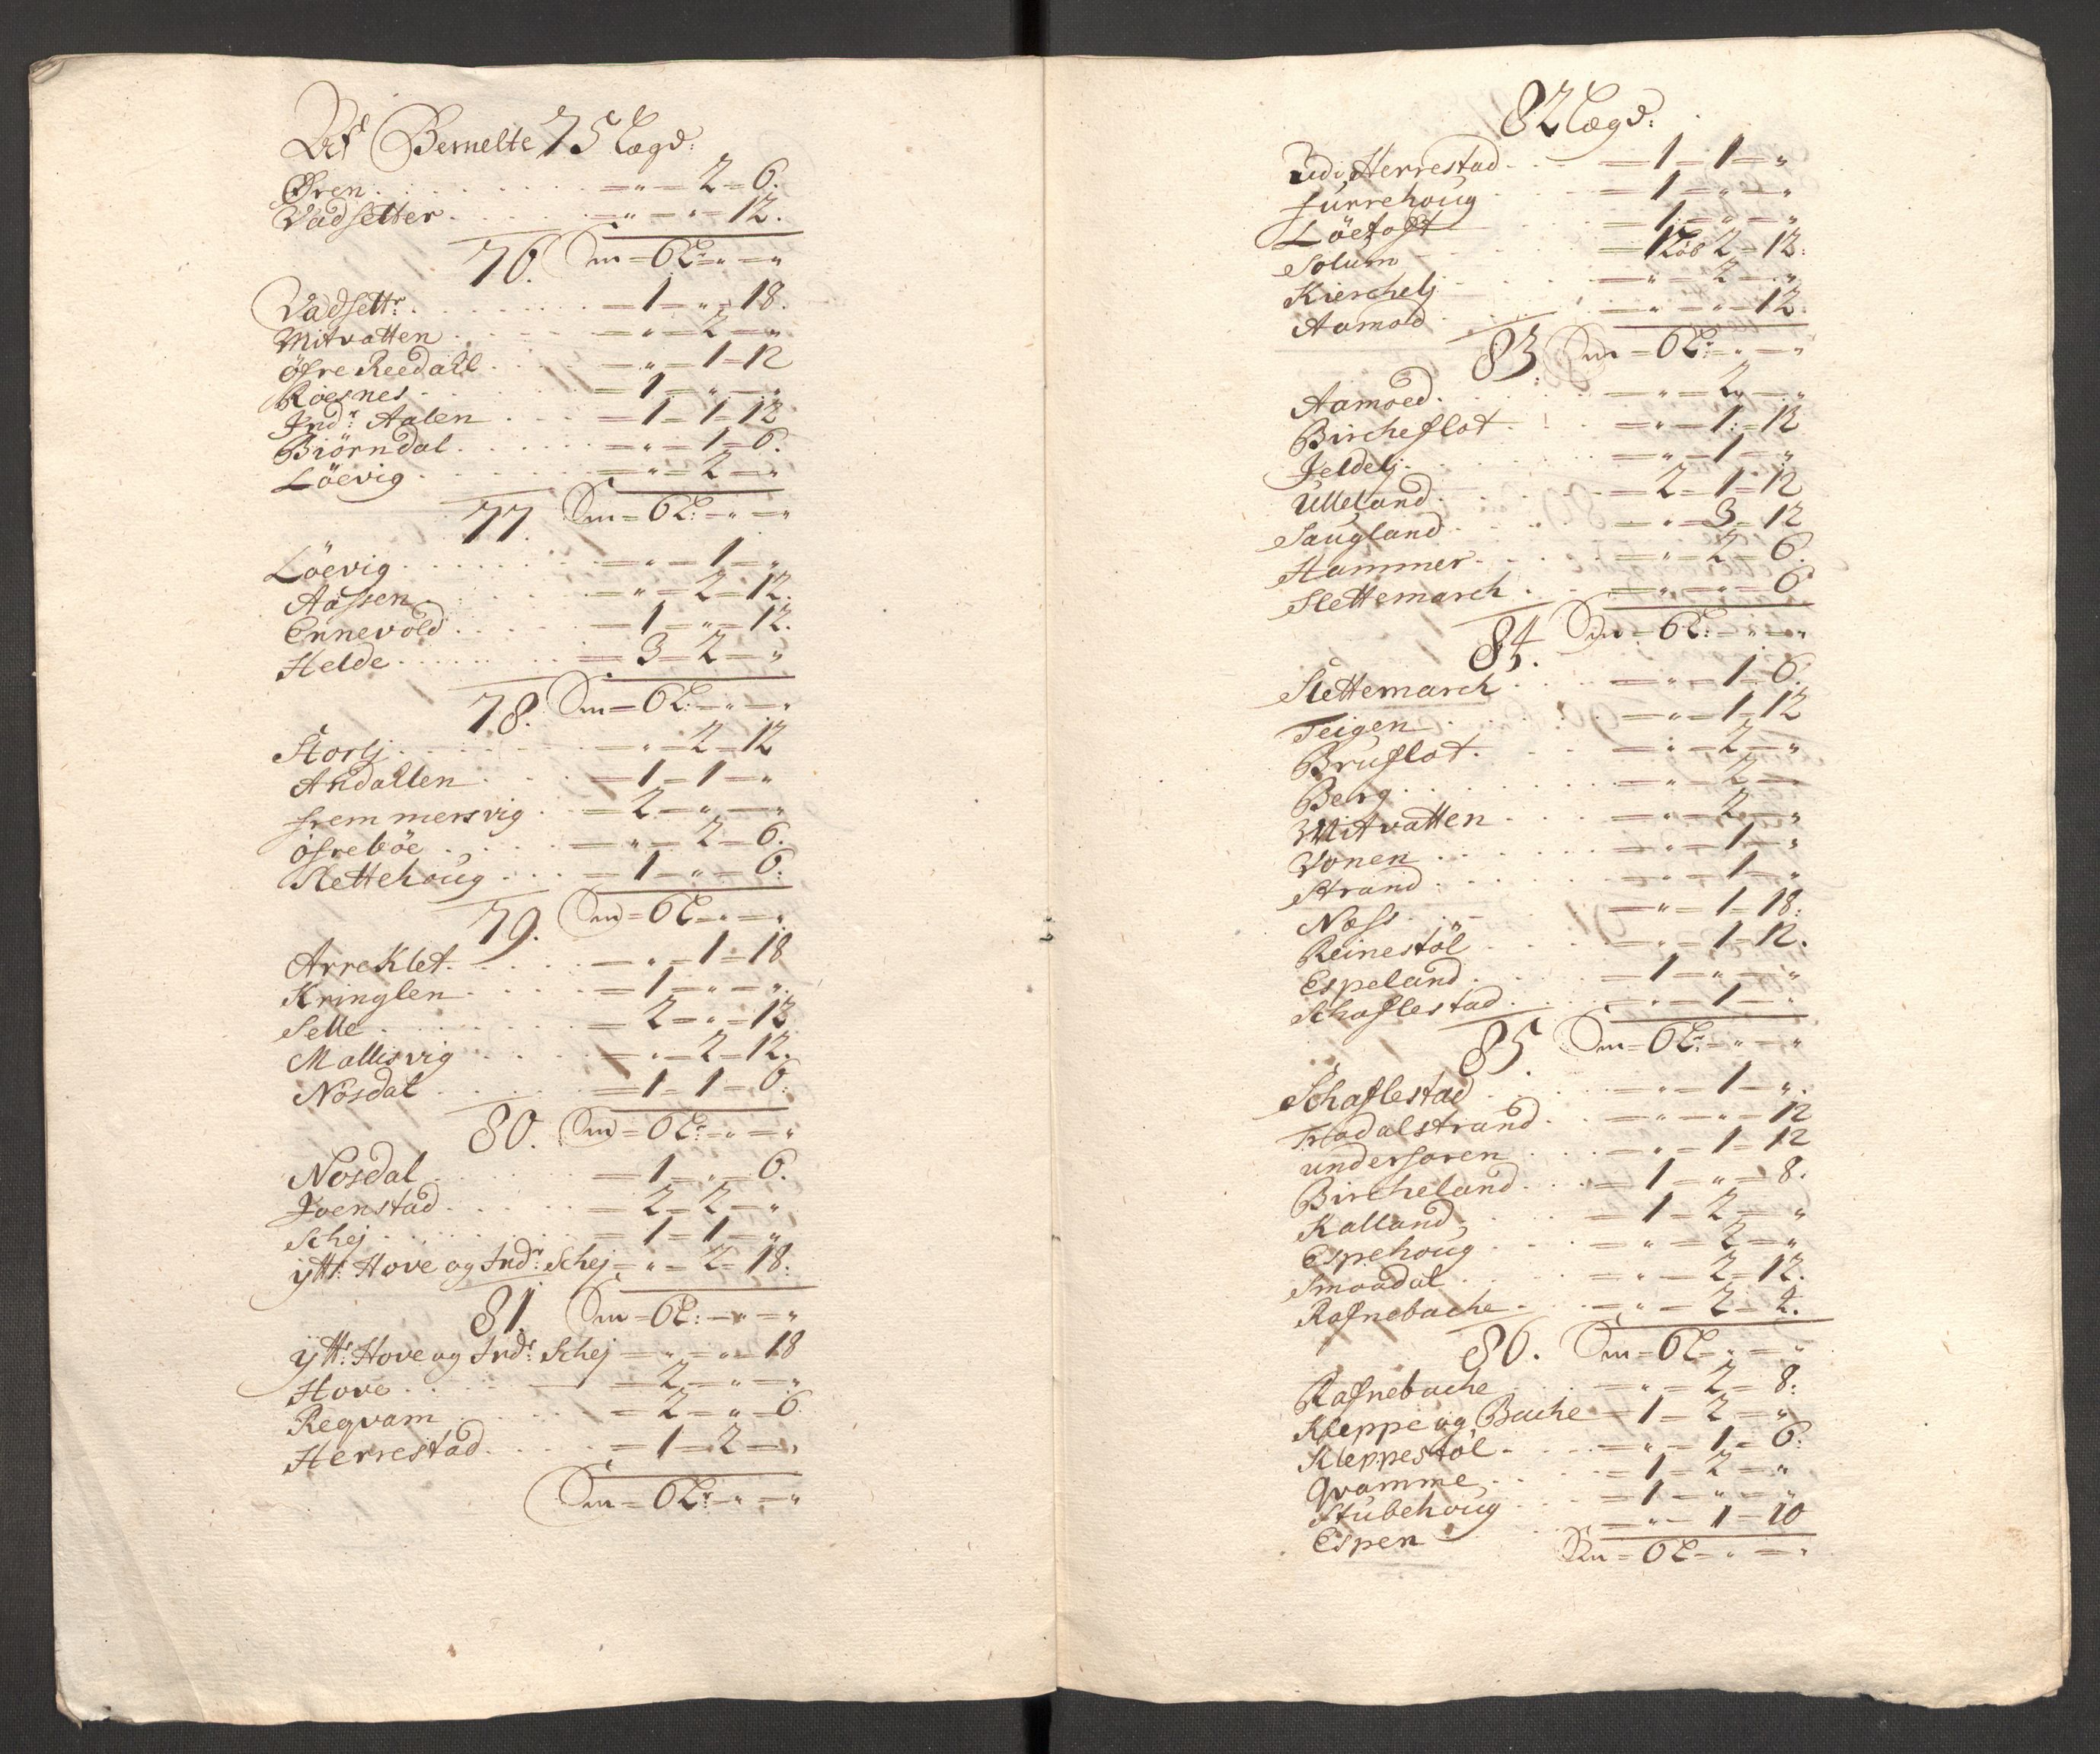 Af Bemelte 75 Lægd:
Øren . . . = " = 2 = 6.
Vadsetter . . . = " = " = 12.
76. Sm = 6 L: = " = "
Vadsettr: . . . = 1 = " = 18.
Mitvatten . . . = " = 2 = "
öfre Reedahl . . . = " = 1 = 12
Röesnes . . . = 1 = " = "
Indr: Aalen . . . = 1 = 1 = 12
Biörndal . . . = " = 1 = 6.
Löevig . . . = " = 2 = "
77. Sm = 6 L: = " = "
Löevig . . . = " = 1 = "
Aassen . . . = " = 2 = 12.
Ennevold . . . = 1 = " = 12.
Helde . . . = 3 = 2 = "
78. Sm = 6 L: = " = "
Storlj . . . = " = 2 = 12
Andallen . . . = 1 = 1 = "
fremmersvig . . . = 2 = " = "
öfreböe . . . = " = 2 = 6.
Slettehoug . . . = 1 = " = 6.
79. Sm = 6 L = " = "
Arreklet . . . = " = 1 = 18
Kringlen . . . = 1 = " = "
Selle . . . = 2 = " = 12
Mallisvig . . . = " = 2 = 12.
Nosdal . . . = 1 = 1 = 6.
80. Sm = 6 L: = " = "
Nosdal . . . = 1 = " = 6.
Joenstad . . . = 2 = 2 = "
Schej . . . = 1 = 1 = "
ÿttr: Hove og Indr: Schej = " = 2 = 18.
81. Sm = 6 L: = " = "
ÿttr: Hove og Indr: Schej = " = " = 18
Hove . . . = 2 = " = "
Reqvam . . . = 2 = " = 6
Herrestad . . . = 1 = 2 = "
Sm = 6 L: = " = "
82 Lægd:
Udi Herrestad . . . = 1 = 1 = "
furrehoug . . . = 1 = " = "
Löetoft . . . = 1 = " = "
Solum . . . = 1 Löb 2 = 12.
Kierchelj . . . = " = 2 = "
Aamod . . . = " = " = 12
83. Sm = 6 L: = " = "
Aamoed . . . = " = 2 = "
Bircheflot . . . = " = 1 = 12
Jeldelj . . . = " = 1 = "
Ulleland . . . = 2 = 1 = 12
Saugland . . . = " = 3 = 12
Hammer . . . = " = 2 = 6
Slettemarch . . . = " = " = 6
84. Sm = 6 L: = " = "
Slettemarch . . . = " = 1 = 6.
Teigen . . . = " = 1 = 12
Bruflot . . . = " = 2 = "
Berg . . . = " = 2 =
Mitvatten . . . = " = 2 = "
Vonen . . . = " = 1 = "
Strand . . . = " = 1 = "
Næss . . . = " = 1 = 18:
Reinestöl . . . = " = 1 = 12.
Espeland . . . = 1 = " = "
Schaflestad . . . = " = 1 = "
85 Sm = 6 L: = " = "
Schaflestad . . . = " = 1 = "
Hadalstrand . . . = " = " = 12
undersaren . . . = " = 1 = 12
Bircheland . . . = 1 = " = 8.
Kalland . . . = 1 = 2 = "
Espehoug . . . = " = 2 = "
Smaadal . . . = " = 2 = 12.
Rafnebache . . . = " = 2 = 2.
86. Sm = 6 L = " = "
Rafnebache . . . = " = 2 = 8:
Kleppe og Bache = 1 = 2 = "
Kleppestöl . . . = " = 1 = 6:
Qvamme . . . = 1 = 2 = "
Stubehoug . . . = 1 = " = "
Espen . . . = " = 1 = 10
Sm = 6 L = " = "